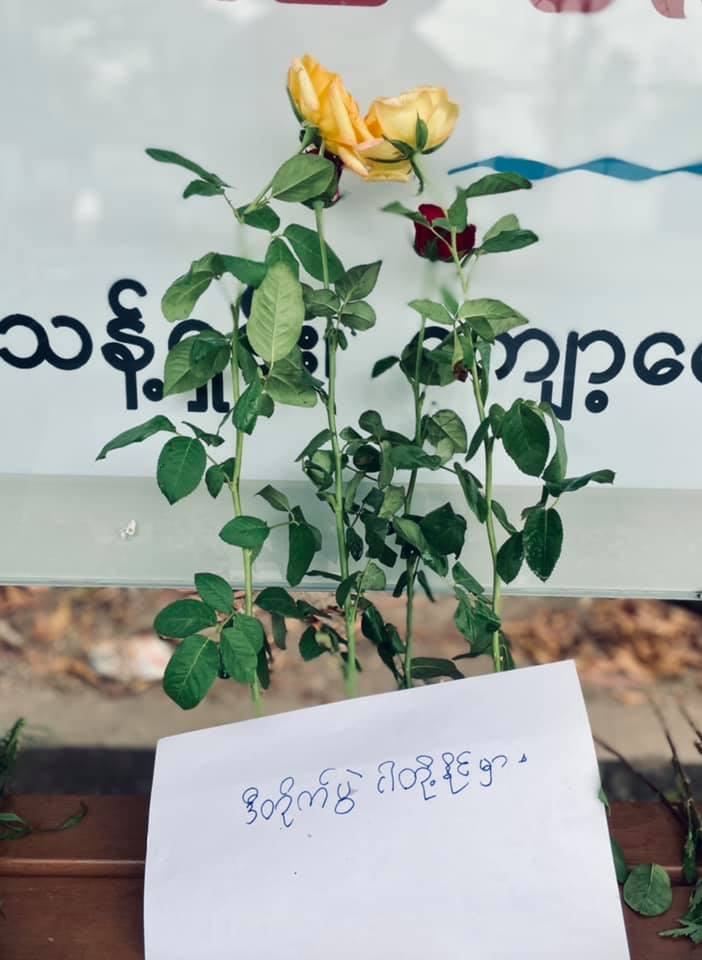 သန့်ရှင်း
ကျော့
ဒီတိုက်ပွဲ ငါတို့နိုင်မှာ .